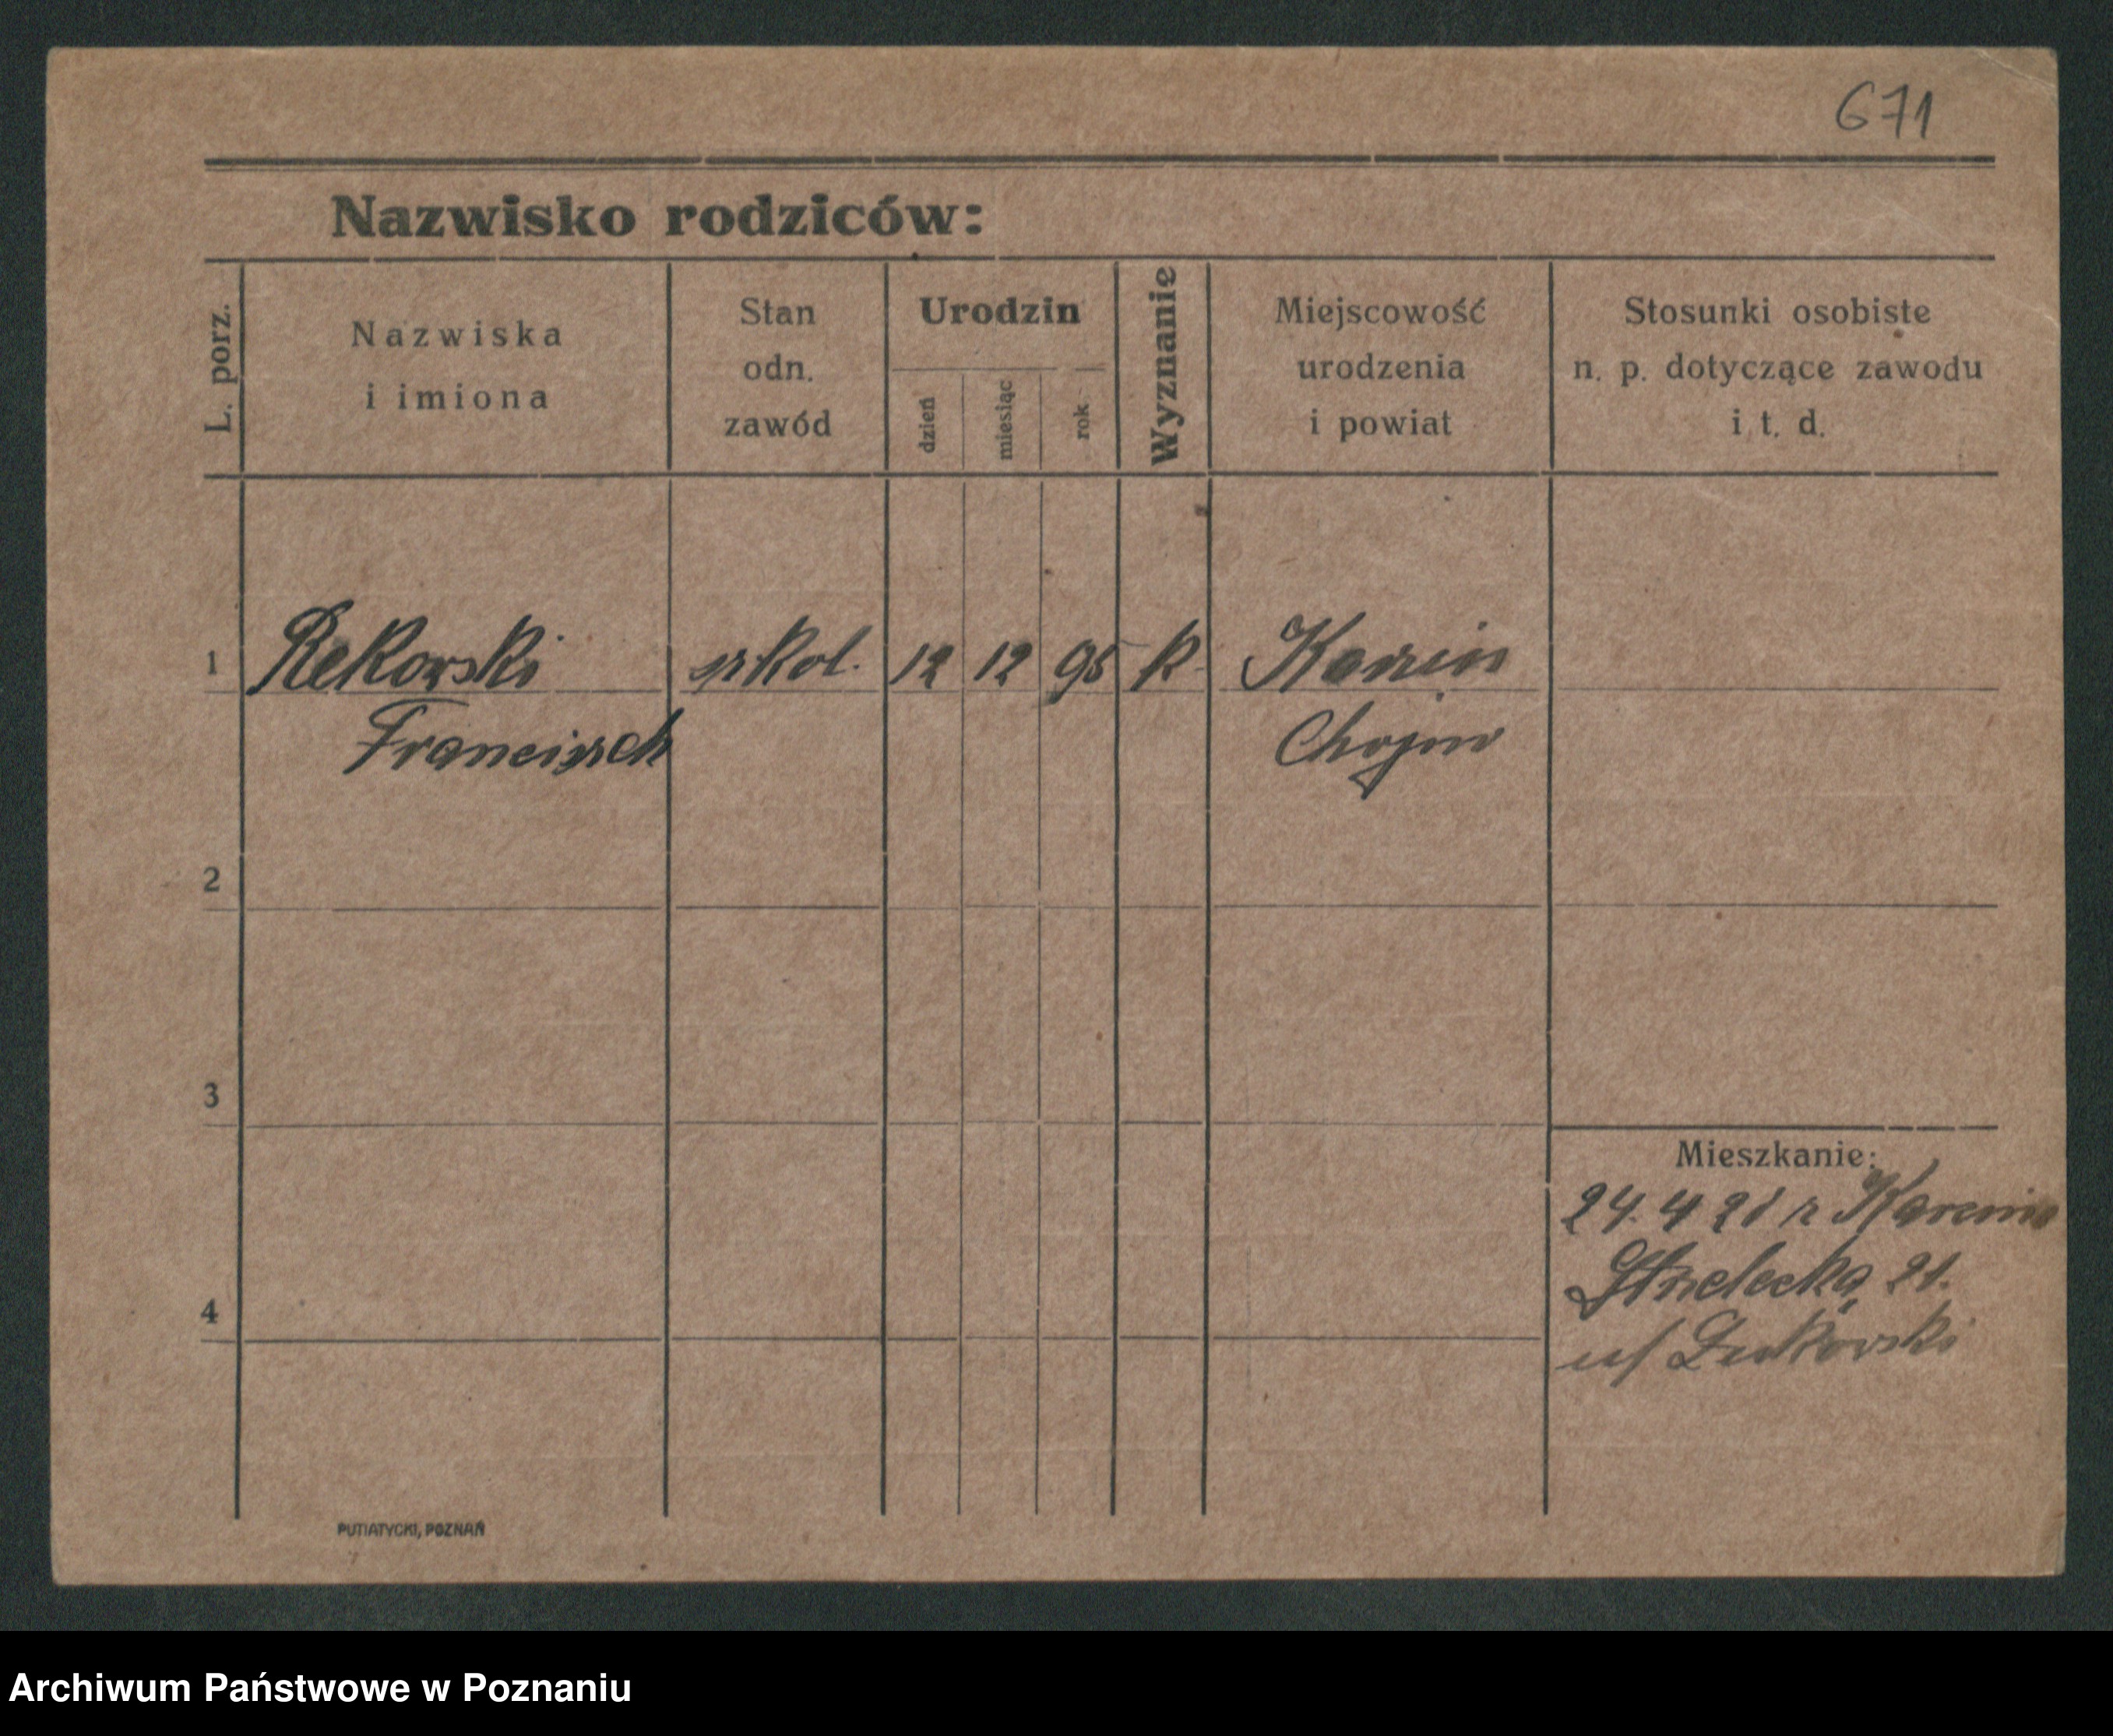 671
Nazwisko rodziców:
L. porz.
Nazwiska
i imiona
Stan
odn.
zawód
Urodzin
dzień
miesiąc
rok
Wyznanie
Miejscowość
urodzenia
i powiat
Stosunki osobiste
n. p. dotyczące zawodu
i t. d.
1 Rekowski 12 12 95 k
Franciszek
2
3
4
Mieszkanie:
24. 4 21 z
Strzelecka 21.
u/
PUTIATYCKI, POZNAŃ
Archiwum Państwowe w Poznaniu